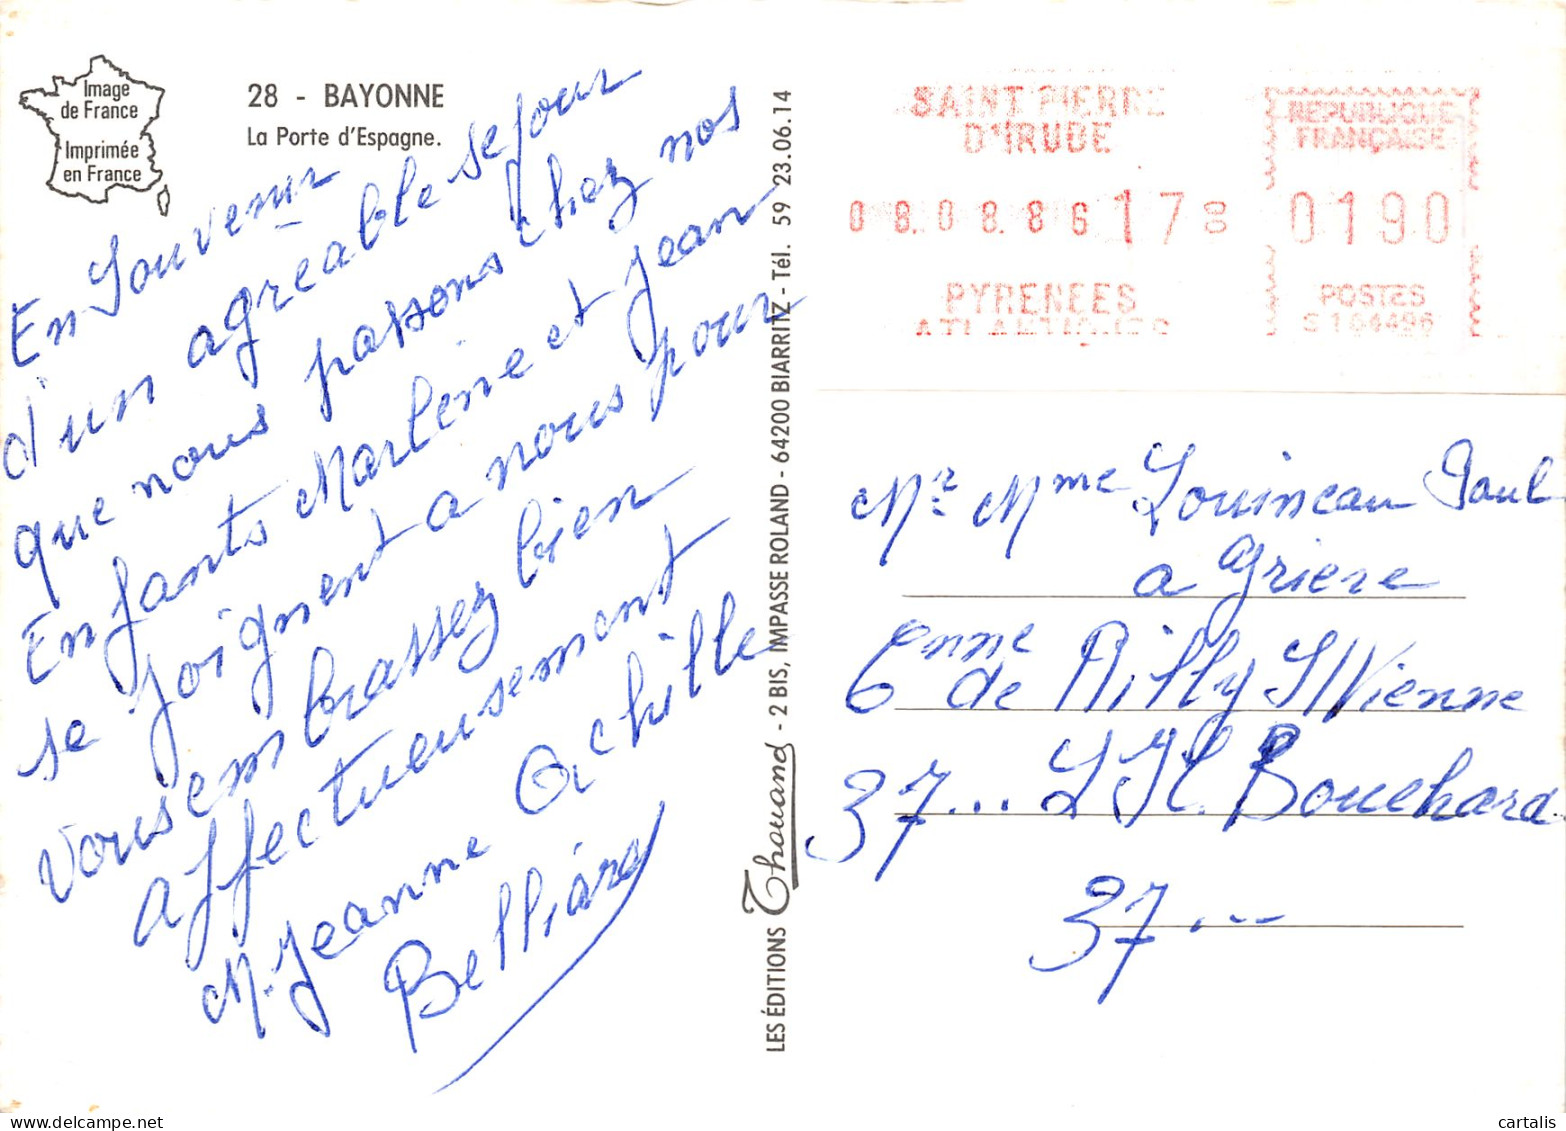 Image
de France
Imprimée
en France
28 - BAYONNE
La Porte d'Espagne.
En Souvenir
d'un agréable sejour
que nous passons chez nos
Enfants Marlène et Jean
se joignent a nous pour
vousembrassez bien
affectueusement
M. Jeanne Achille
Belliard
LES ÉDITIONS Thouand - 2 BIS, IMPASSE ROLAND - 64200 BIARRITZ - Tél. 59 23.06.14
SAINT PIERRE
D'IRUBE
08.08.86 17 00
PYRENEES
ATLANTIQUES
REPUBLIQUE
FRANÇAISE
0190
POSTES
S 104496
Mr Mme Louineau Paul
a Griere
Commune de Rilly S/Vienne
37... L'Il. Bouchard
37...